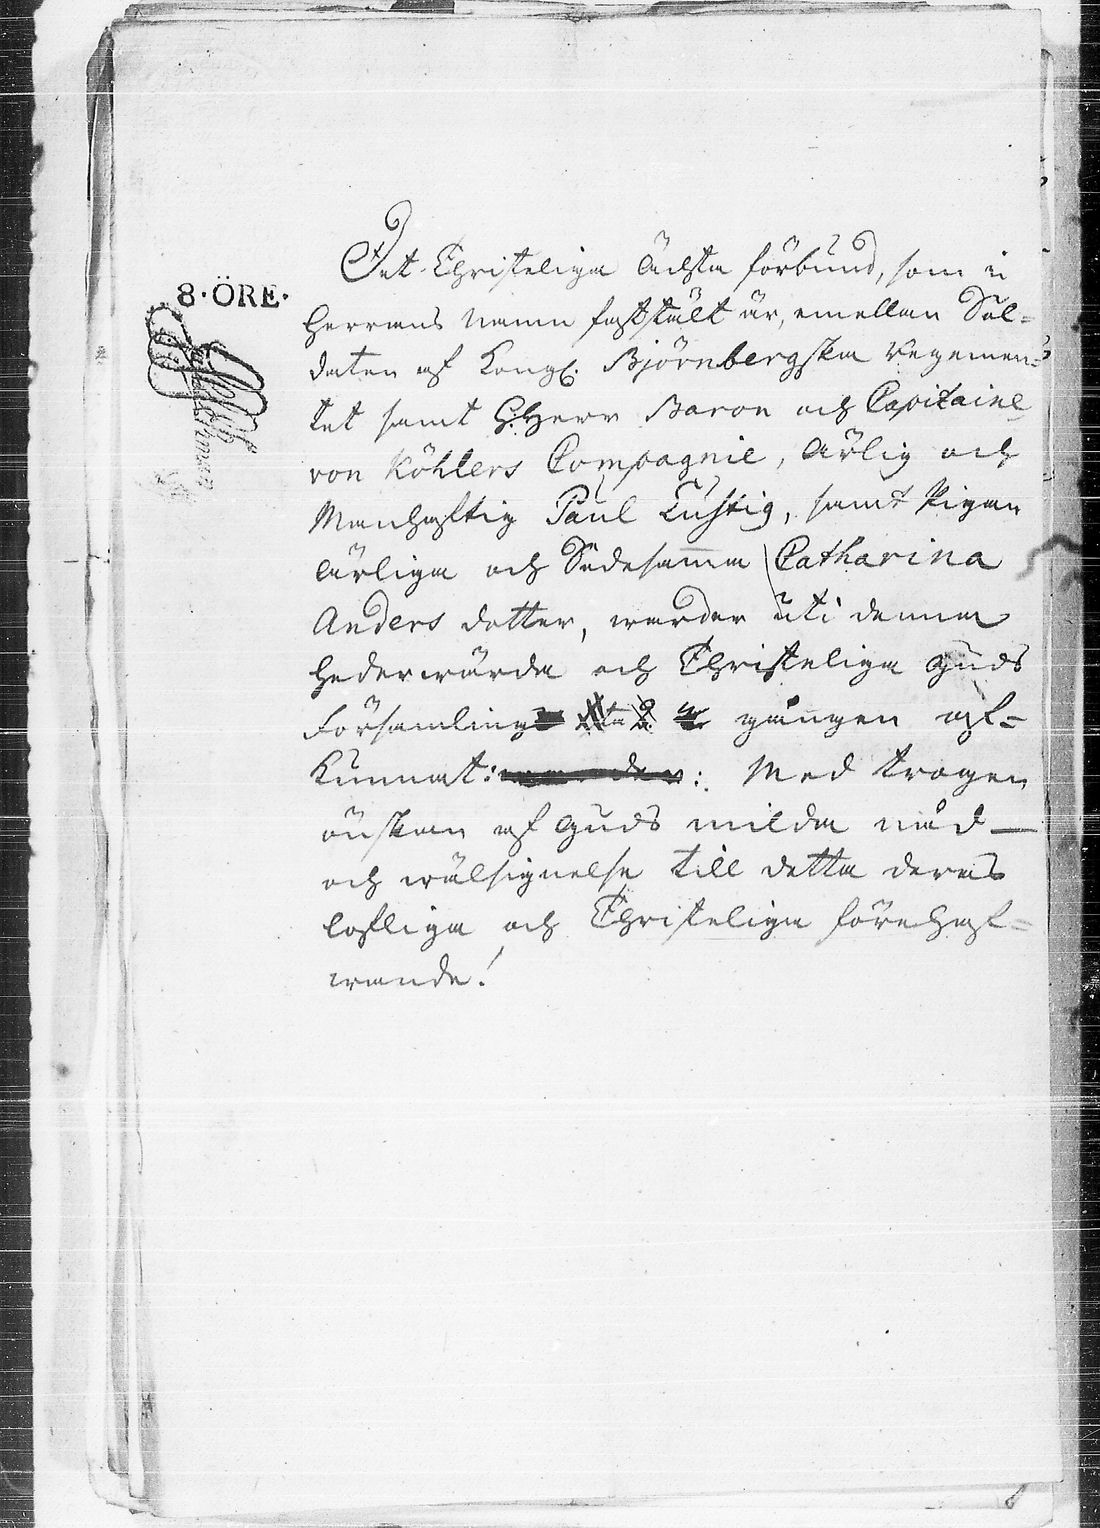 8·ÖRE·
Det Christeliga Ächta förbund, som i
Herrans namn faststält är, emellan Sol=
daten af Kongl. Björnbergska Regemen=
tet samt H. Herr Baron och Capitaine
von Köhlers Compagnie, Ärlig och
Manhaftig Paul Lustig, samt Pigan
Ärliga och Sedesamma Catharina
Anders dotter, warder uti denna
hederwärda och Christeliga Guds
Församling gången af=
kunnat: : Med trogen
önskan af Guds milda nåd
och wälsignelse till detta deras
lofliga och Christeliga förehaf=
wande!